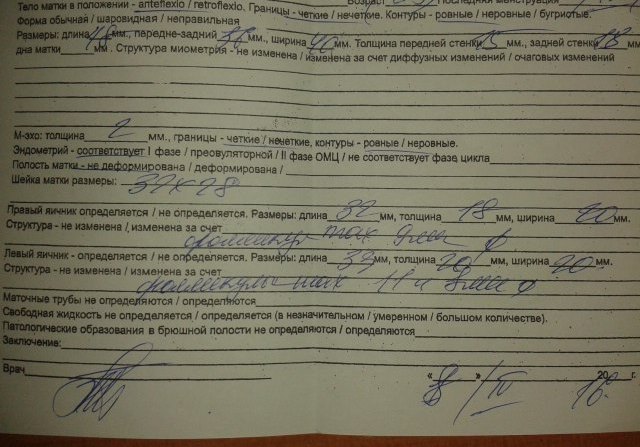 Тело матки в положении - anteflexio / retroflexio. Границы - четкие / нечеткие. Контуры - ровные / неровные / бугристые.
Форма обычная / шаровидная / неправильная
Размеры: длина мм., передне-задний мм., ширина мм. Толщина передней стенки 15 мм., задней стенки 18 мм.
дна матки мм. Структура миометрия - не изменена / изменена за счет диффузных изменений / очаговых изменений
М-эхо: толщина 2 мм., границы - четкие / нечеткие, контуры - ровные / неровные.
Эндометрий - соответствует I фазе / преовуляторной / II фазе ОМЦ / не соответствует фазе цикла
Полость матки - не деформирована / деформирована /
Шейка матки размеры: 32 х 28
Правый яичник определяется / не определяется. Размеры: длина 32 мм, толщина 18 мм, ширина 20 мм.
Структура - не изменена / изменена за счет
фолликул max ø
Левый яичник - определяется / не определяется. Размеры: длина 33 мм, толщина 20 мм, ширина 20 мм.
Структура - не изменена / изменена за счет
фолликулы max 11 и 8 мм ø
Маточные трубы не определяются / определяются
Свободная жидкость не определяется / определяется (в незначительном / умеренном / большом количестве).
Патологические образования в брюшной полости не определяются / определяются
Заключение:
Врач « 8 » 20 16 г.